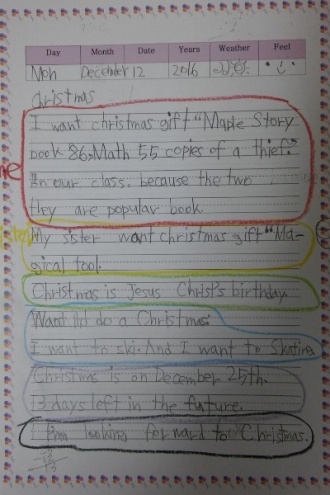 Day Month Date Years Weather Feel
Mon December 12 2016
christmas
I want christmas gift "Maple Story
book 86. Math 55 copies of a thief."
In our class. because the two
they are popular book.
My sister want christmas gift "Ma-
gical tool.
Christmas is Jesus Christ's birthday.
Want to do a Christmas.
I want to ski. And I want to Skating
Christmas is on December 25th.
13 days left in the future.
I am looking forward to Christmas.